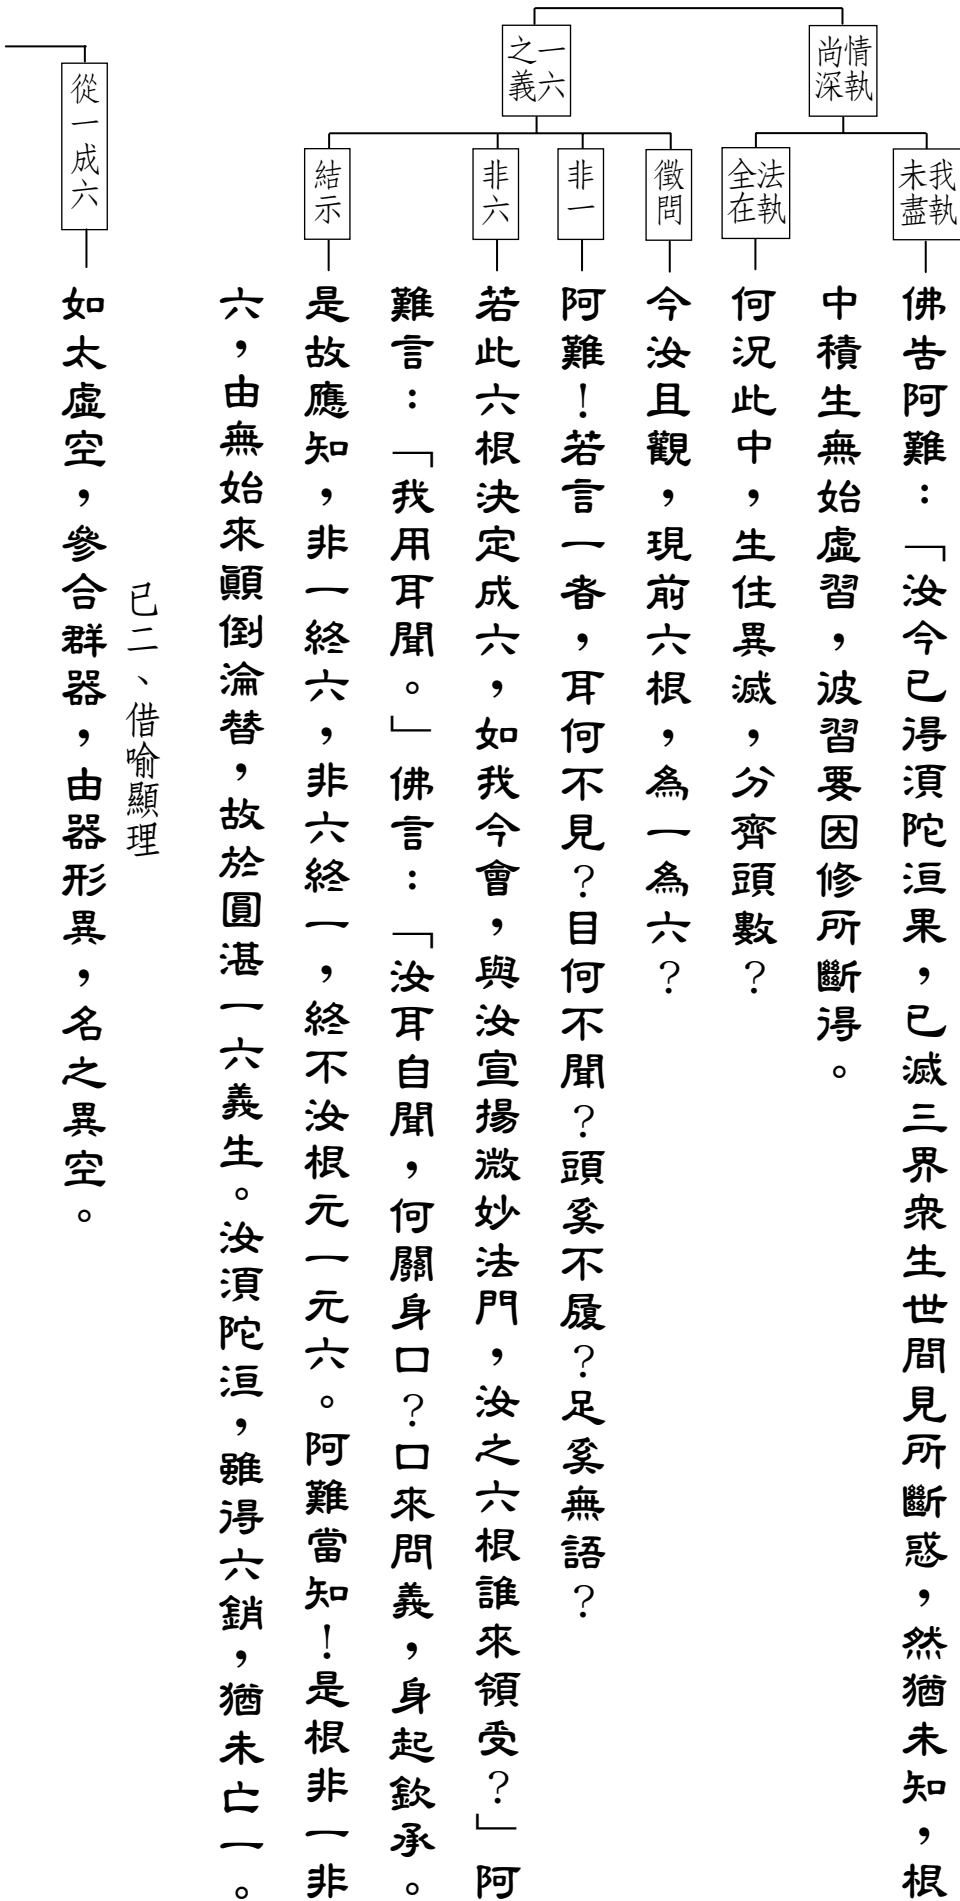 情執尚深
我執未盡
佛告阿難：「汝今已得須陀洹果，已滅三界衆生世間見所斷惑，然猶未知，根
中積生無始虛習，彼習要因修所斷得。
法執全在
何況此中，生住異滅，分齊頭數？
一六之義
徵問
今汝且觀，現前六根，為一為六？
非一
阿難！若言一者，耳何不見？目何不聞？頭奚不履？足奚無語？
非六
若此六根決定成六，如我今會，與汝宣揚微妙法門，汝之六根誰來領受？」阿
難言：「我用耳聞。」佛言：「汝耳自聞，何關身口？口來問義，身起欽承。
結示
是故應知，非一終六，非六終一，終不汝根元一元六。阿難當知！是根非一非
六，由無始來顛倒淪替，故於圓湛一六義生。汝須陀洹，雖得六銷，猶未亡一。
己二、借喻顯理
從一成六
如太虛空，參合群器，由器形異，名之異空。